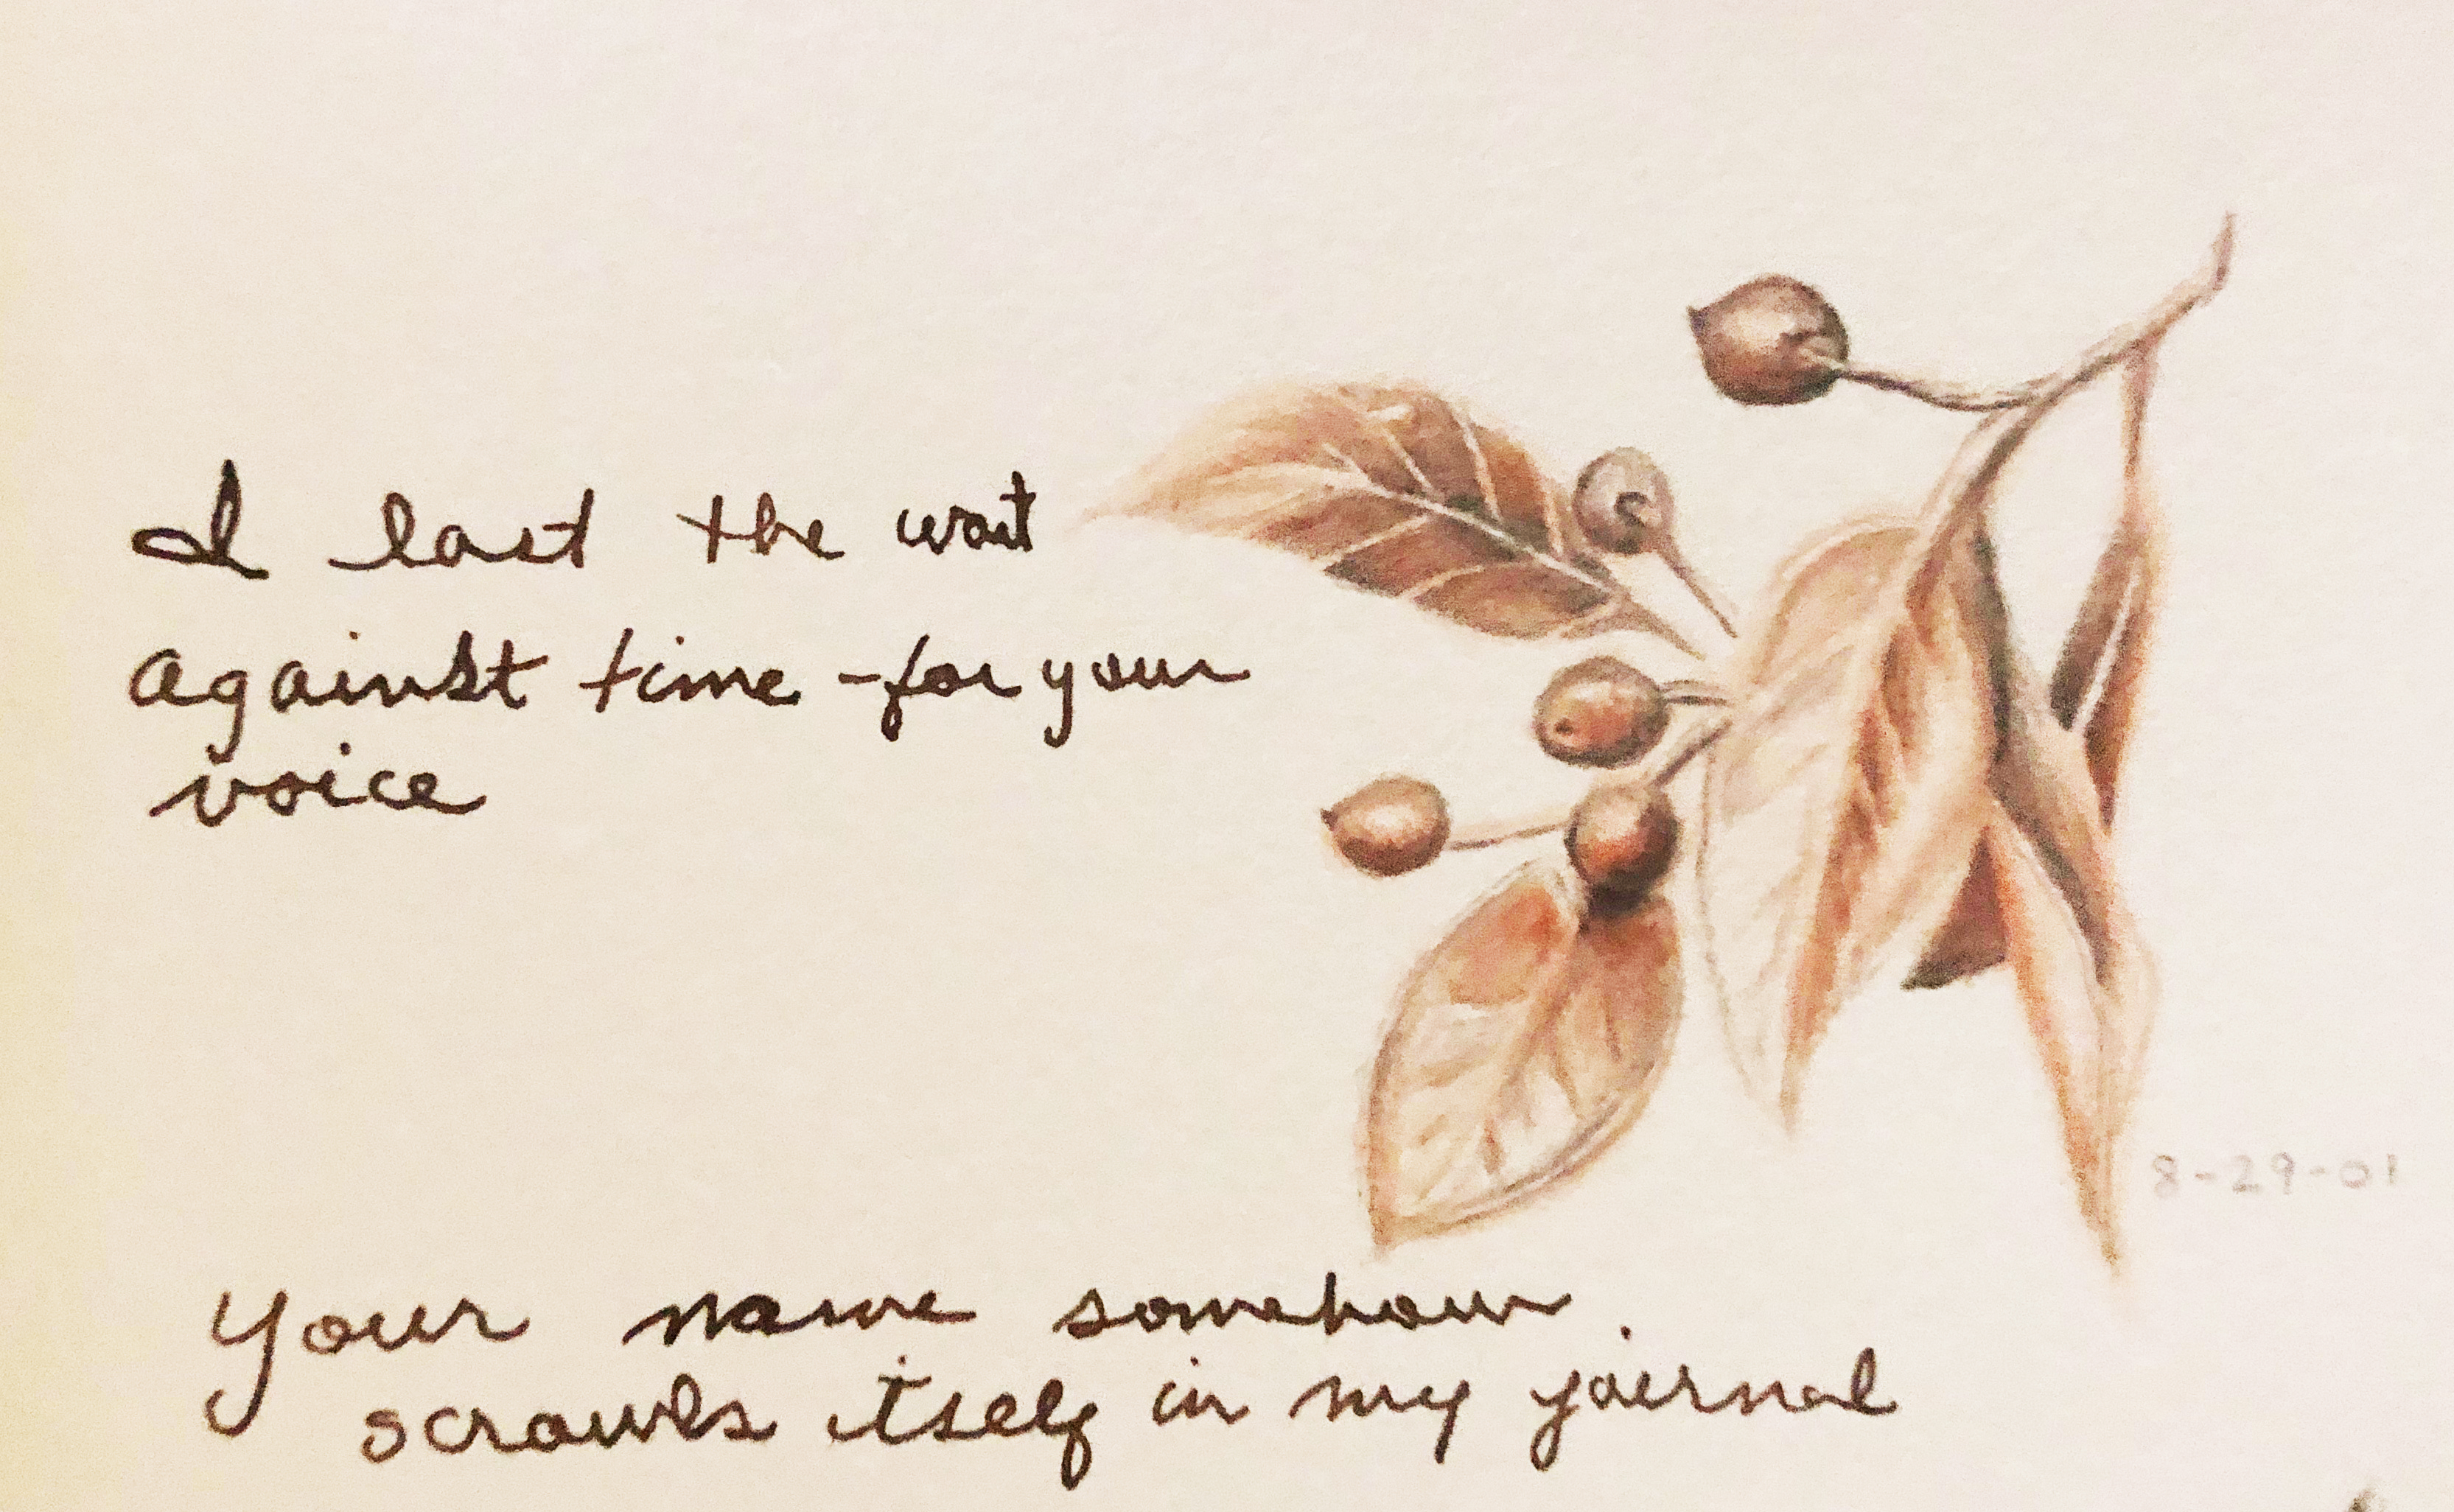 I last the wait
against time - for your
voice
8-29-01
Your name somehow
scrawls itself in my journal